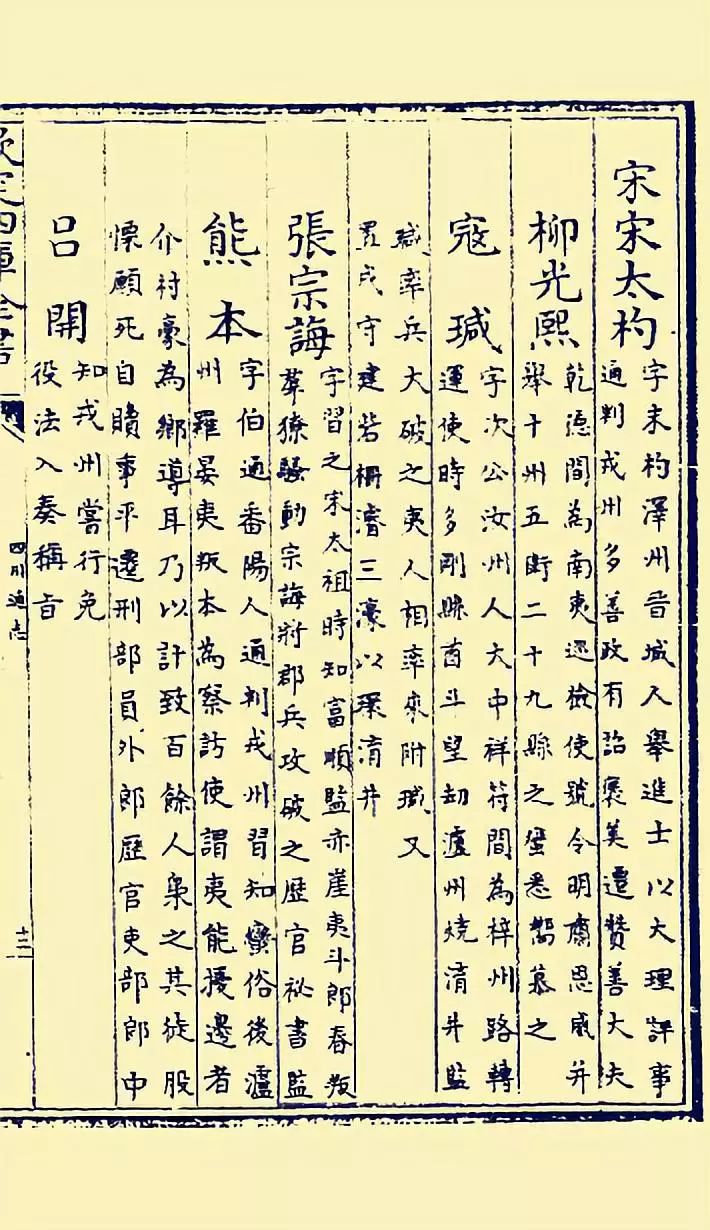 宋宋太杓
字末杓澤州晉城人舉進士以大理評事
通判戎州多善政有詔褒美遷贊善大夫
柳光熙
乾德間為南夷廵檢使號令明肅恩威并
舉十州五街二十九縣之蠻悉嚮慕之
寇瑊
字次公汝州人大中祥符間為梓州路轉
運使時多剛縣酋斗望刼瀘州燒淯井監
瑊率兵大破之夷人相率來附瑊又
置戍守建砦柵濬三濠以環淯井
張宗誨
字習之宋太祖時知富順監亦崖夷斗郎春叛
羣獠騷動宗誨將郡兵攻破之歴官祕書監
熊本
字伯通番陽人通判戎州習知蠻俗後瀘
州羅晏夷叛本為察訪使謂夷能擾邊者
介村豪為鄉導耳乃以計致百餘人梟之其徒股
慄願死自贖事平遷刑部員外郎歴官吏部郎中
呂開
知戎州嘗行免
役法入奏稱旨
欽定四庫全書
四川通志
十二